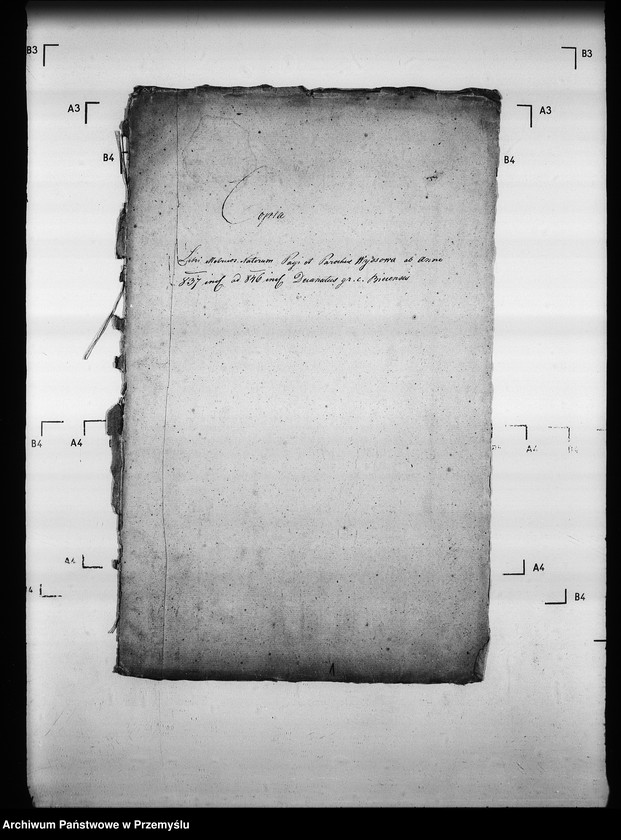 B3 B3
A3 A3
B4 B4
Copia
Libri Metrices Natorum Pagi et Parochiae Wysowa ab Anno
837 incl. ad 846 incl. Decanatus gr. c. Biecensis
B4 A4 A4 B4
A4 A4
4 B4
1
Archiwum Państwowe w Przemyślu